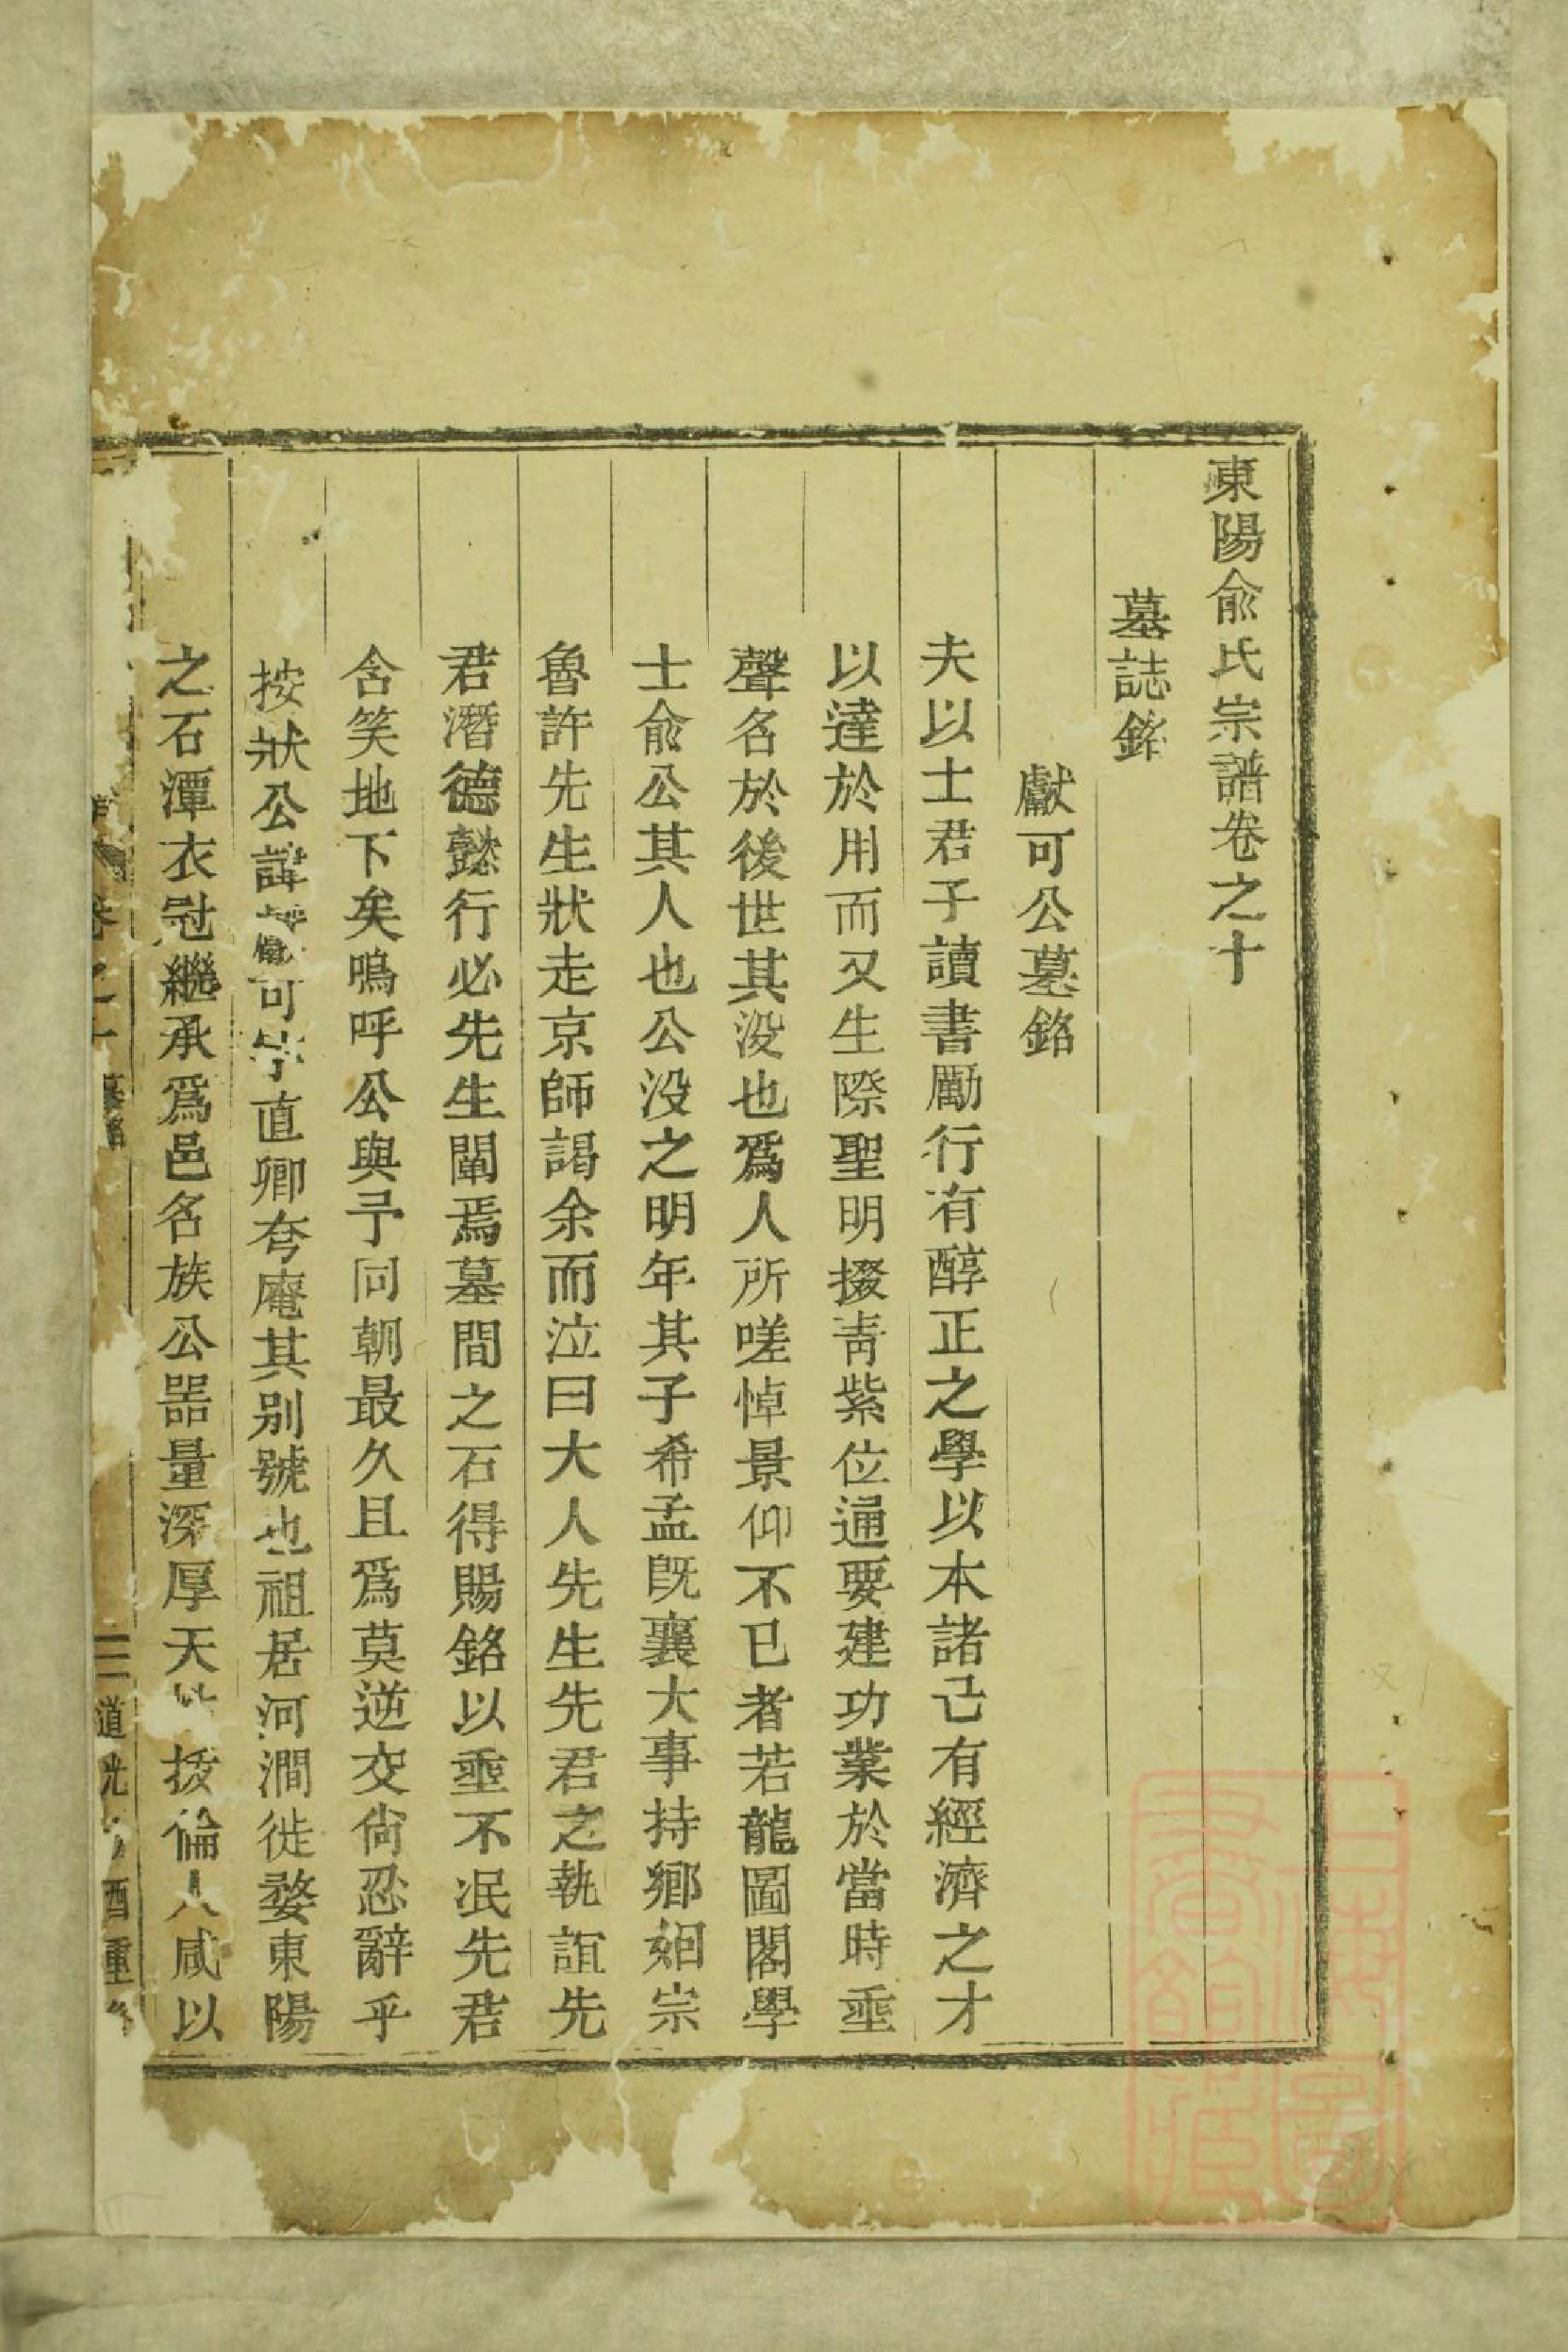 東陽俞氏宗譜卷之十
墓誌銘
獻可公墓銘
夫以士君子讀書勵行有醇正之學以本諸己有經濟之才
以達於用而又生際聖明掇靑紫位通要建功業於當時垂
聲名於後世其没也爲人所嗟悼景仰不已者若龍圖閣學
士俞公其人也公没之明年其子希孟旣襄大事持鄉姻宗
魯許先生狀走京師謁余而泣曰大人先生先君之執誼先
君潛德懿行必先生闡焉墓間之石得賜銘以垂不泯先君
含笑地下矣嗚呼公與予同朝最久且爲莫逆交尙忍辭乎
按狀公諱獻可字直卿夸庵其别號也祖居河澗徙婺東陽
之石潭衣冠繼承爲邑名族公器量深厚天拔倫人咸以
卷之十 墓銘 道光酉重
上海圖書館藏